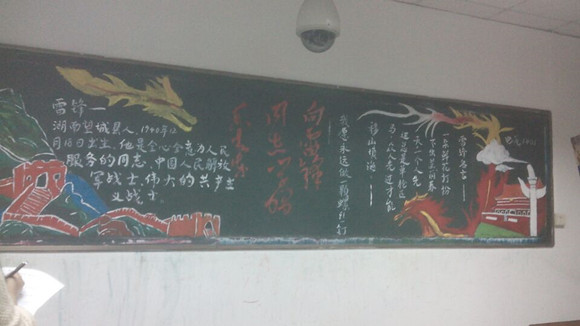 雷锋—
湖南望城县人,1940年12
月18日出生,他是全心全意为人民
服务的同志,中国人民解放
军战士,伟大的共产主
义战士。
向雷锋
同志学习
雷锋名言:——
一朵鲜花打扮
不出美丽的春
天一个人先
进总是单枪匹
马,众人先进才能
移山填海
我愿永远做一颗螺丝钉